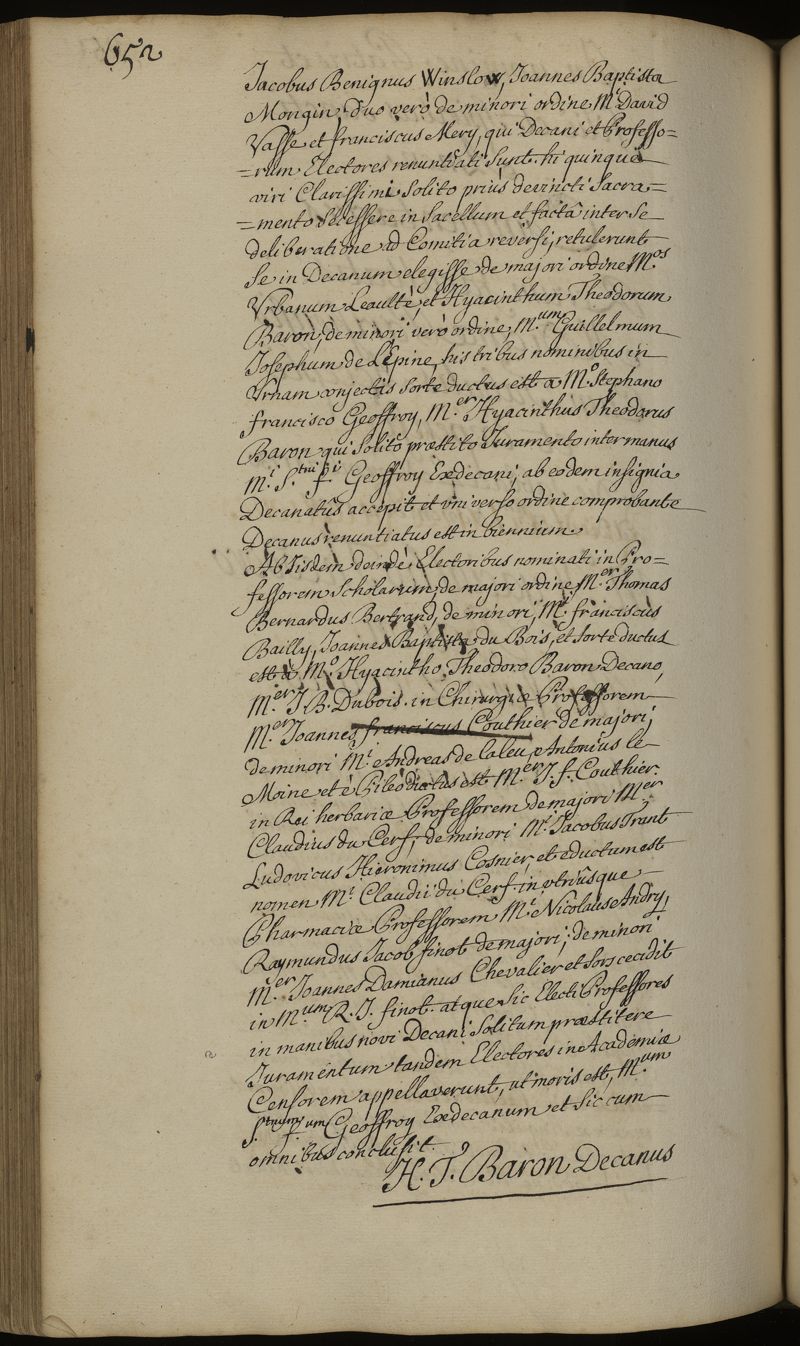 652
Jacobus Benignus Winslow, Joannes Baptista
Mongin, duo verò de minori ordine M.i David
Vasse et franciscus Mery, qui Decani et Professo=
=rum Electores renuntiati sunt. hi quinque
viri Clarissimi solito priùs devincti Sacra=
=mento secessere in sacellum et factâ inter se
deliberatione ad Comitia reversi, retulerunt
se in Decanum elegisse de majori ordine M.os
Urbanum Leaulté, et Hyacinthum Theodorum
Baron, de minori verò ordine, M.um Guillelmum
Josephum de Lépine, his tribus nominibus in
Urnam conjectis sorte ductus est a M.o Stephano
francisco Geoffroy, M.er Hyacinthus Theodorus
Baron qui solito præstito Juramento inter manus
M.i S.tni f.ci Geoffroy Exdecani, ab eodem insignia
Decanatûs accepit et universo ordine comprobante
Decanus renuntiatus est in biennium.
Ab Iisdem deindè Electoribus nominati in Pro=
fessorem Scholarum, de majori ordine M.er Thomas
Bernardus Bertrand, de minori, M.i franciscus
Bailly, Joannes Baptista du Bois, et sorte ductus
est à M.o Hyacintho Theodoro Baron Decano,
M.er J. B. Dubois. in Chirurgiæ Professorem
M.er Joannes franciscus Couthier de majori,
de minori M.i Andreas de Laleu, Antonius le
Moine et è Pileo ductus est M.er J. f. Couthier.
in Rei herbariæ Professorem de majori M.er
Claudius du Cerf, de minori M.i Jacobus Trant
Ludovicus Hieronimus Cosnier, et eductum est
nomen M.i Claudii du Cerf. in utriûsque
Pharmaciæ Professorem M.i Nicolaus Andry,
Raymundus Jacob finot de majori, de minori
M.er Joannes Damianus Chevalier et sors cecidit
in M.um R. J. finot. atque sic Electi Professores
in manibus novi Decani solitum præstitere
Juramentum tandem Electores in Academiæ
Censorem appellaverunt, ut moris est, M.um
Geoffroy Exdecanum et sic cum
omnibus conclusit.
H. T. Baron Decanus